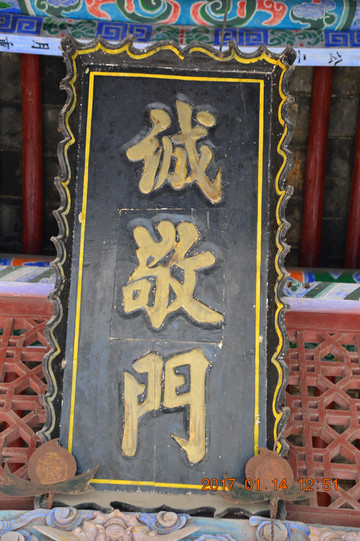 誠
敬
門
2017.01.14 12:51